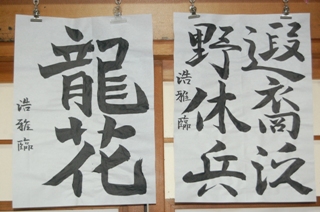 遐裔泛
野休兵
浩雅臨
龍花
浩雅臨